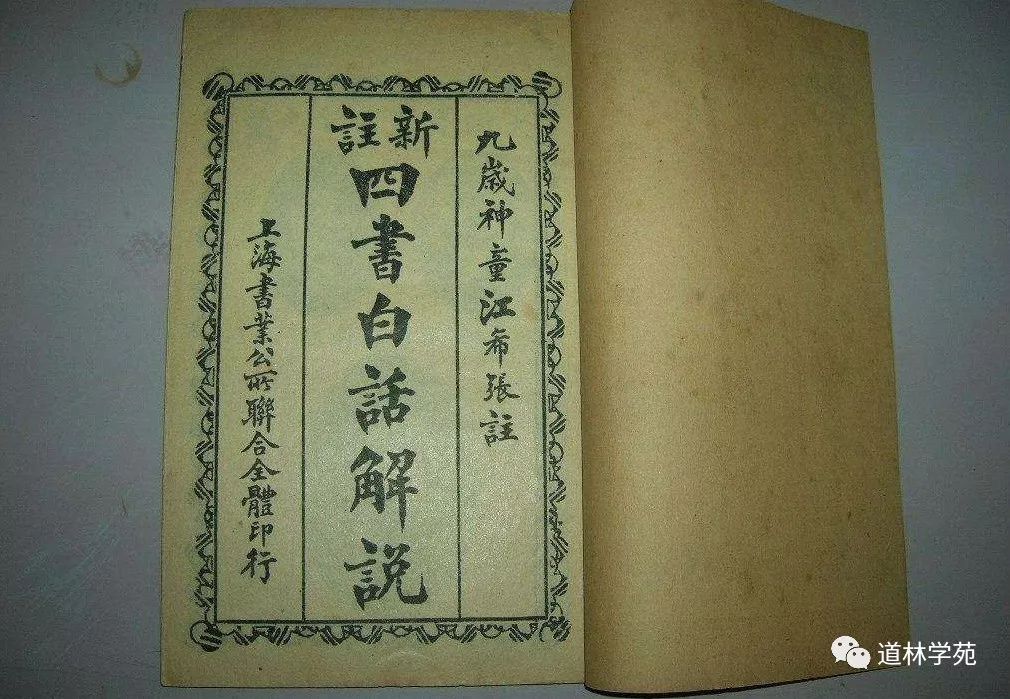 九歲神童江希張註
新註
四書白話解說
上海書業公所聯合全體印行
道林学苑